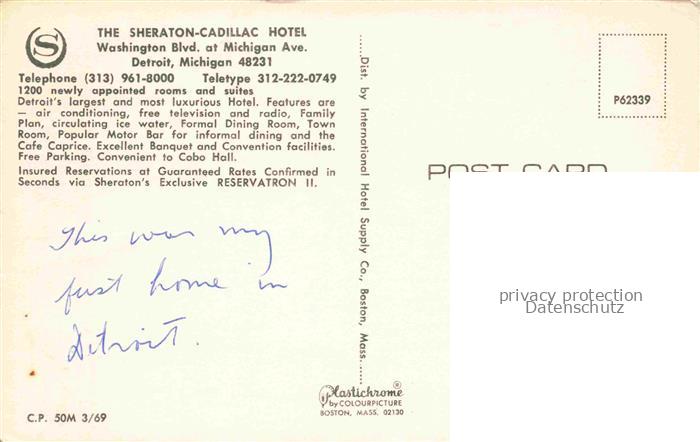 THE SHERATON-CADILLAC HOTEL
Washington Blvd. at Michigan Ave.
Detroit, Michigan 48231
Telephone (313) 961-8000 Teletype 312-222-0749
1200 newly appointed rooms and suites
Detroit's largest and most luxurious Hotel. Features are
— air conditioning, free television and radio, Family
Plan, circulating ice water, Formal Dining Room, Town
Room, Popular Motor Bar for informal dining and the
Cafe Caprice. Excellent Banquet and Convention facilities.
Free Parking. Convenient to Cobo Hall.
Insured Reservations at Guaranteed Rates Confirmed in
Seconds via Sheraton's Exclusive RESERVATRON II.
This was my
first home in
Detroit.
C.P. 50M 3/69
....Dist. by International Hotel Supply Co., Boston, Mass.....
Plastichrome ®
by COLOURPICTURE
BOSTON, MASS. 02130
P62339
POST CARD
privacy protection
Datenschutz
S